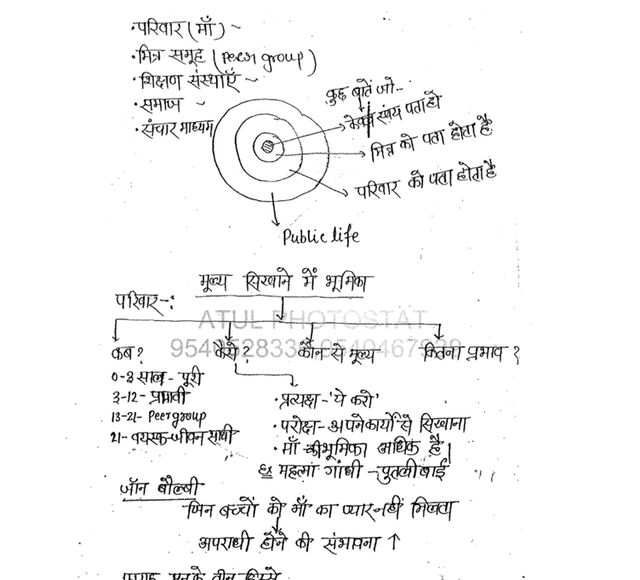 • परिवार (माँ) ~
• मित्र समूह (Peer group)
• शिक्षण संस्थाएँ ~
• समाज ~
• संचार माध्यम
कुछ बातें जो--
केवल स्वंय पता हो
मित्र को पता होता है
परिवार को पता होता है
Public life
मूल्य सिखाने में भूमिका
परिवार -:
ATUL PHOTOSTAT
कब? कैसे? कौन से मूल्य कितना प्रभाव ?
0-8 साल - पूरी
3-12- प्रभावी
13-21- Peer group
21- वयस्क-जीवन साथी
• प्रत्यक्ष - 'ये करो'
• परोक्ष - अपने कार्यों से सिखाना
• माँ की भूमिका अधिक है।
गांधी - पुतलीबाई
जॉन बौल्बी
जिन बच्चों को माँ का प्यार नहीं मिलता
अपराधी होने की संभावना ↑